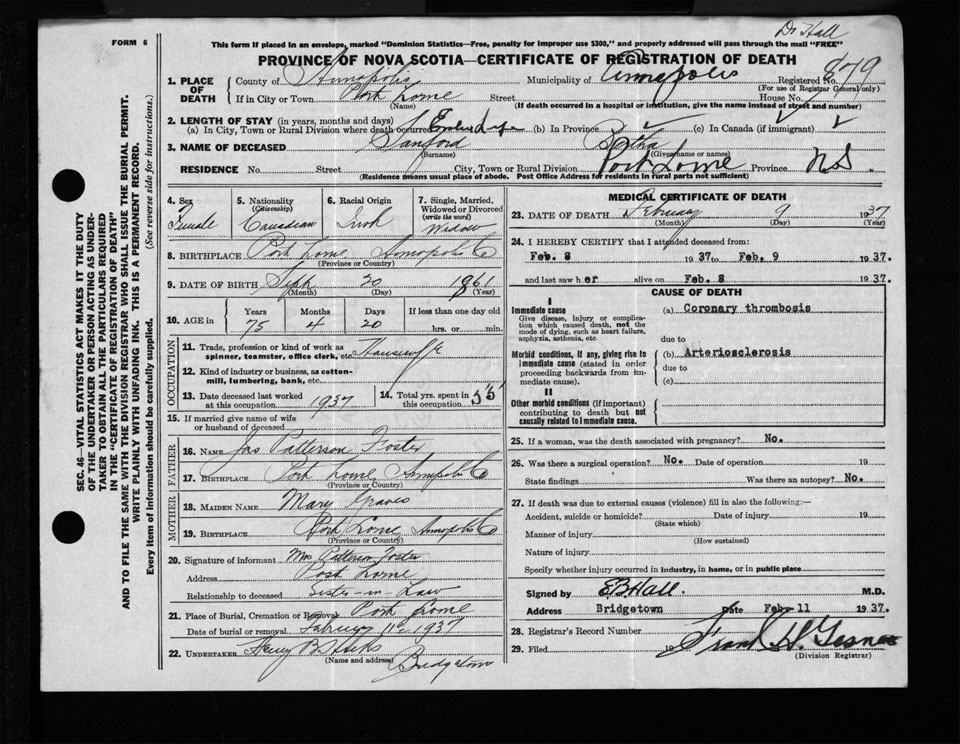 Dr Hall
FORM 6
This form if placed in an envelope, marked "Dominion Statistics—Free, penalty for improper use $300," and properly addressed will pass through the mail "FREE"
PROVINCE OF NOVA SCOTIA—CERTIFICATE OF REGISTRATION OF DEATH
1. PLACE OF DEATH
County of Annapolis Municipality of Annapolis Registered No. 879
(For use of Registrar General only)
If in City or Town Port Lorne Street House No.
(Name) (If death occurred in a hospital or institution, give the name instead of street and number)
2. LENGTH OF STAY (in years, months and days)
(a) In City, Town or Rural Division where death occurred (b) In Province (c) In Canada (if immigrant)
3. NAME OF DECEASED Sanford Bertha
(Surname) (Given name or names)
RESIDENCE No. Street City, Town or Rural Division Port Lorne Province N.S.
(Residence means usual place of abode. Post Office Address for residents in rural parts not sufficient)
SEC. 46—VITAL STATISTICS ACT MAKES IT THE DUTY
OF THE UNDERTAKER OR PERSON ACTING AS UNDER-
TAKER TO OBTAIN ALL THE PARTICULARS REQUIRED
IN THE "CERTIFICATE OF REGISTRATION OF DEATH"
AND TO FILE THE SAME WITH THE DIVISION REGISTRAR WHO SHALL ISSUE THE BURIAL PERMIT.
WRITE PLAINLY WITH UNFADING INK. THIS IS A PERMANENT RECORD.
Every item of information should be carefully supplied. (See reverse side for instructions.)
4. Sex Female
5. Nationality (Citizenship) Canadian
6. Racial Origin Irish
7. Single, Married, Widowed or Divorced (write the word) Widow
8. BIRTHPLACE Port Lorne Annapolis Co
(Province or Country)
9. DATE OF BIRTH Sept 20 1861
(Month) (Day) (Year)
10. AGE in Years Months Days If less than one day
75 4 20 hrs. or min.
OCCUPATION
11. Trade, profession or kind of work as spinner, teamster, office clerk, etc. Housewife
12. Kind of industry or business, as cotton-mill, lumbering, bank, etc.
13. Date deceased last worked at this occupation 1937
14. Total yrs. spent in this occupation 55
15. If married give name of wife or husband of deceased
FATHER
16. NAME Jas Patterson Foster
17. BIRTHPLACE Port Lorne Annapolis Co
(Province or Country)
MOTHER
18. MAIDEN NAME Mary Graves
19. BIRTHPLACE Port Lorne Annapolis Co
(Province or Country)
20. Signature of informant Mrs Patterson Foster
Address Port Lorne
Relationship to deceased Sister-in Law
21. Place of Burial, Cremation or Removal Port Lorne
Date of burial or removal February 11 1937
22. UNDERTAKER
(Name and address) Bridgetown
MEDICAL CERTIFICATE OF DEATH
23. DATE OF DEATH February 9 1937
(Month) (Day) (Year)
24. I HEREBY CERTIFY that I attended deceased from:
Feb. 8 1937 to Feb. 9 1937.
and last saw her alive on Feb. 8 1937.
CAUSE OF DEATH
I
Immediate cause (a) Coronary thrombosis
Give disease, injury or complication which caused death, not the mode of dying, such as heart failure, asphyxia, asthenia, etc.
due to
Morbid conditions, if any, giving rise to immediate cause (stated in order proceeding backwards from immediate cause). (b) Arteriosclerosis
due to
(c)
II
Other morbid conditions (if important) contributing to death but not causally related to immediate cause.
25. If a woman, was the death associated with pregnancy? No.
26. Was there a surgical operation? No. Date of operation 19
State findings Was there an autopsy? No.
27. If death was due to external causes (violence) fill in also the following:—
Accident, suicide or homicide? Date of injury 19
(State which)
Manner of injury
(How sustained)
Nature of injury
Specify whether injury occurred in industry, in home, or in public place
Signed by E B Hall. M.D.
Address Bridgetown Date Feb 11 1937.
28. Registrar's Record Number
29. Filed 19 Frank H
(Division Registrar)